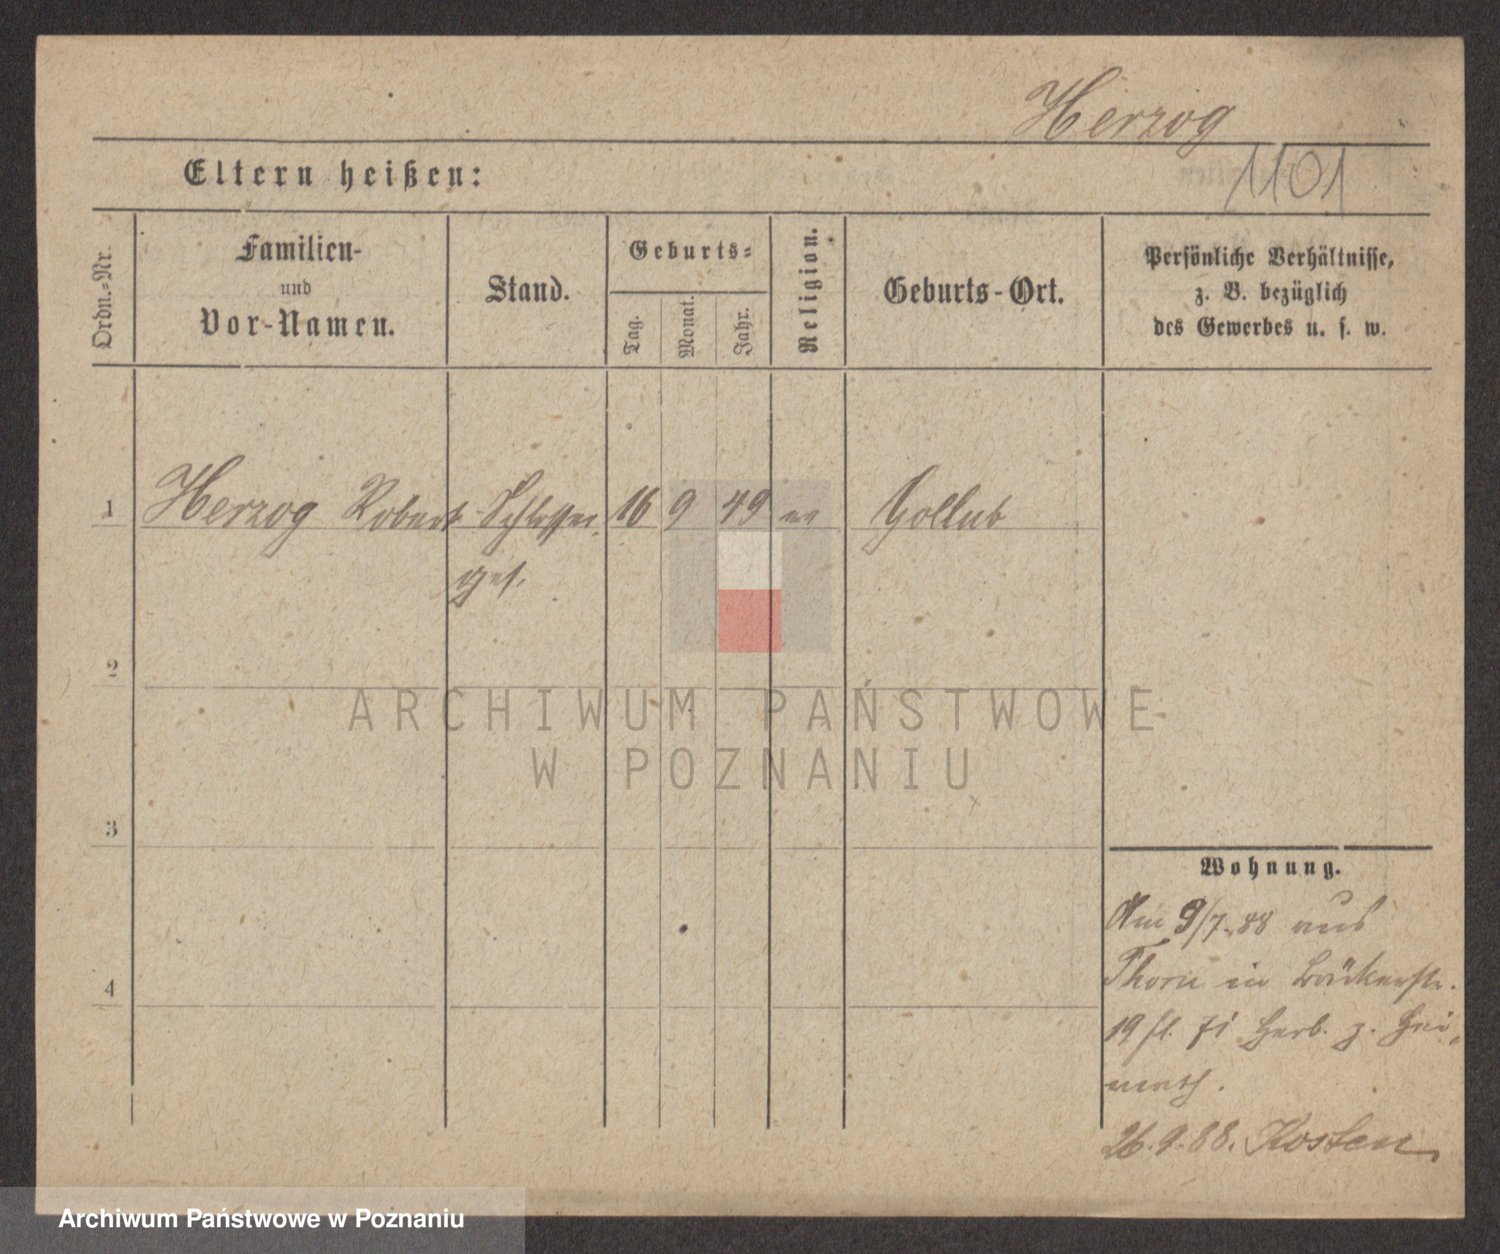 Herzog
1101
Eltern heißen:
Ordn.-Nr.
Familien-
und
Vor-Namen.
Stand.
Geburts-
Tag.
Monat.
Jahr.
Religion.
Geburts-Ort.
Persönliche Verhältnisse,
z. B. bezüglich
des Gewerbes u. s. w.
1 Herzog Robert Schlosser 16 9 49 ev Gollub
ges.
2
3
4
ARCHIWUM PAŃSTWOWE
W POZNANIU
Wohnung.
Am 9/7 88 aus
Thorn in Bäckerstr.
19 Herb. z. Hei-
math.
26.9.88. Kosten
Archiwum Państwowe w Poznaniu